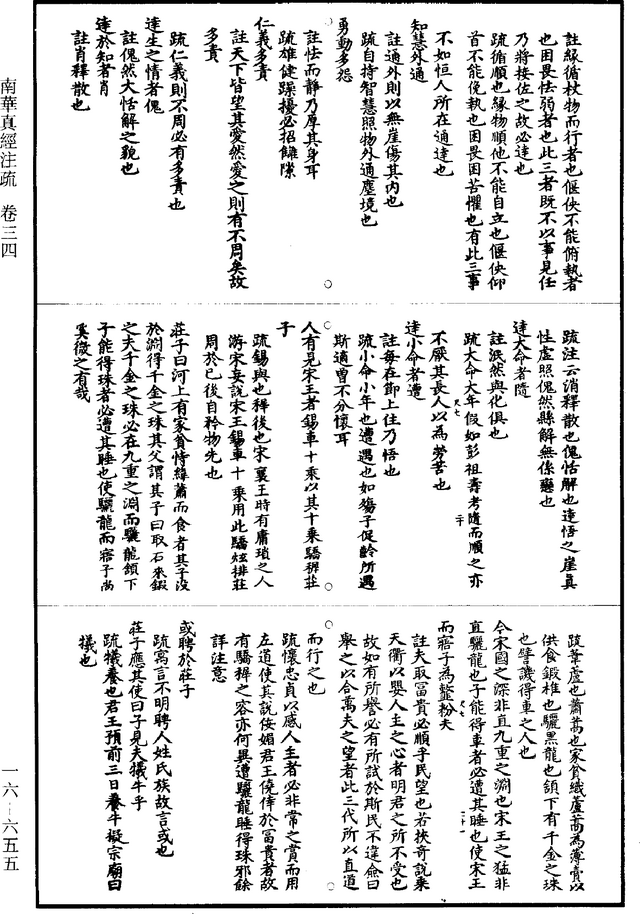 南華真經注疏 卷三四
註緣循杖物而行者也偃佒不能俯執者
也困畏怯弱者也此三者既不以事見任
乃將接佐之故必達也
疏循順也緣物順他不能自立也偃佒仰
首不能俛執也困畏困苦懼也有此三事
不如恒人所在通達也
知慧外通
註通外則以無崖傷其內也
疏自持智慧照物外通塵境也
勇動多怨
註怯而靜乃厚其身耳
疏雄健躁擾必招讎隙
仁義多責
註天下皆望其愛然愛之則有不周矣故
多責
疏仁義則不周必有多責也
達生之情者傀
註傀然大恬解之貌也
達於知者肖
註肖釋散也
疏注云消釋散也傀恬解也達悟之崖真
性虛照傀然縣解無係戀也
達大命者隨
註泯然與化俱也
疏大命大年假如彭祖壽考隨而順之亦
不厭其長人以為勞苦也
達小命者遭
註每在節上住乃悟也
疏小命小年也遭遇也如殤子促齡所遇
斯適曾不分懷耳
人有見宋王者錫車十乘以其十乘驕穉莊
子
疏錫與也穉後也宋襄王時有庸瑣之人
游宋妄說宋王錫車十乘用此驕炫排莊
周於己後自矜物先也
莊子曰河上有家貧恃緯蕭而食者其子沒
於淵得千金之珠其父謂其子曰取石來鍛
之夫千金之珠必在九重之淵而驪龍頷下
子能得珠者必遭其睡也使驪龍而寤子尚
奚微之有哉
疏葦蘆也蕭蒿也家貧織蘆蒿為薄賣以
供食鍛椎也驪黑龍也頷下有千金之珠
也譬譏得車之人也
今宋國之深非直九重之淵也宋王之猛非
直驪龍也子能得車者必遭其睡也使宋王
而寤子為韲粉夫
註夫取富貴必順乎民望也若挾奇說乘
天衢以嬰人主之心者明君之所不受也
故如有所譽必有所試於斯民不違僉曰
舉之以合萬夫之望者此三代所以直道
而行之也
疏懷忠貞以感人主者必非常之賞而用
左道使其說佞媚君王僥倖於富貴者故
有驕穉之容亦何異遭驪龍睡得珠邪餘
詳注意
或聘於莊子
疏寓言不明聘人姓氏族故言或也
莊子應其使曰子見夫犧牛乎
疏犧養也君王預前三日養牛擬宗廟曰
犧也
一六-六五五